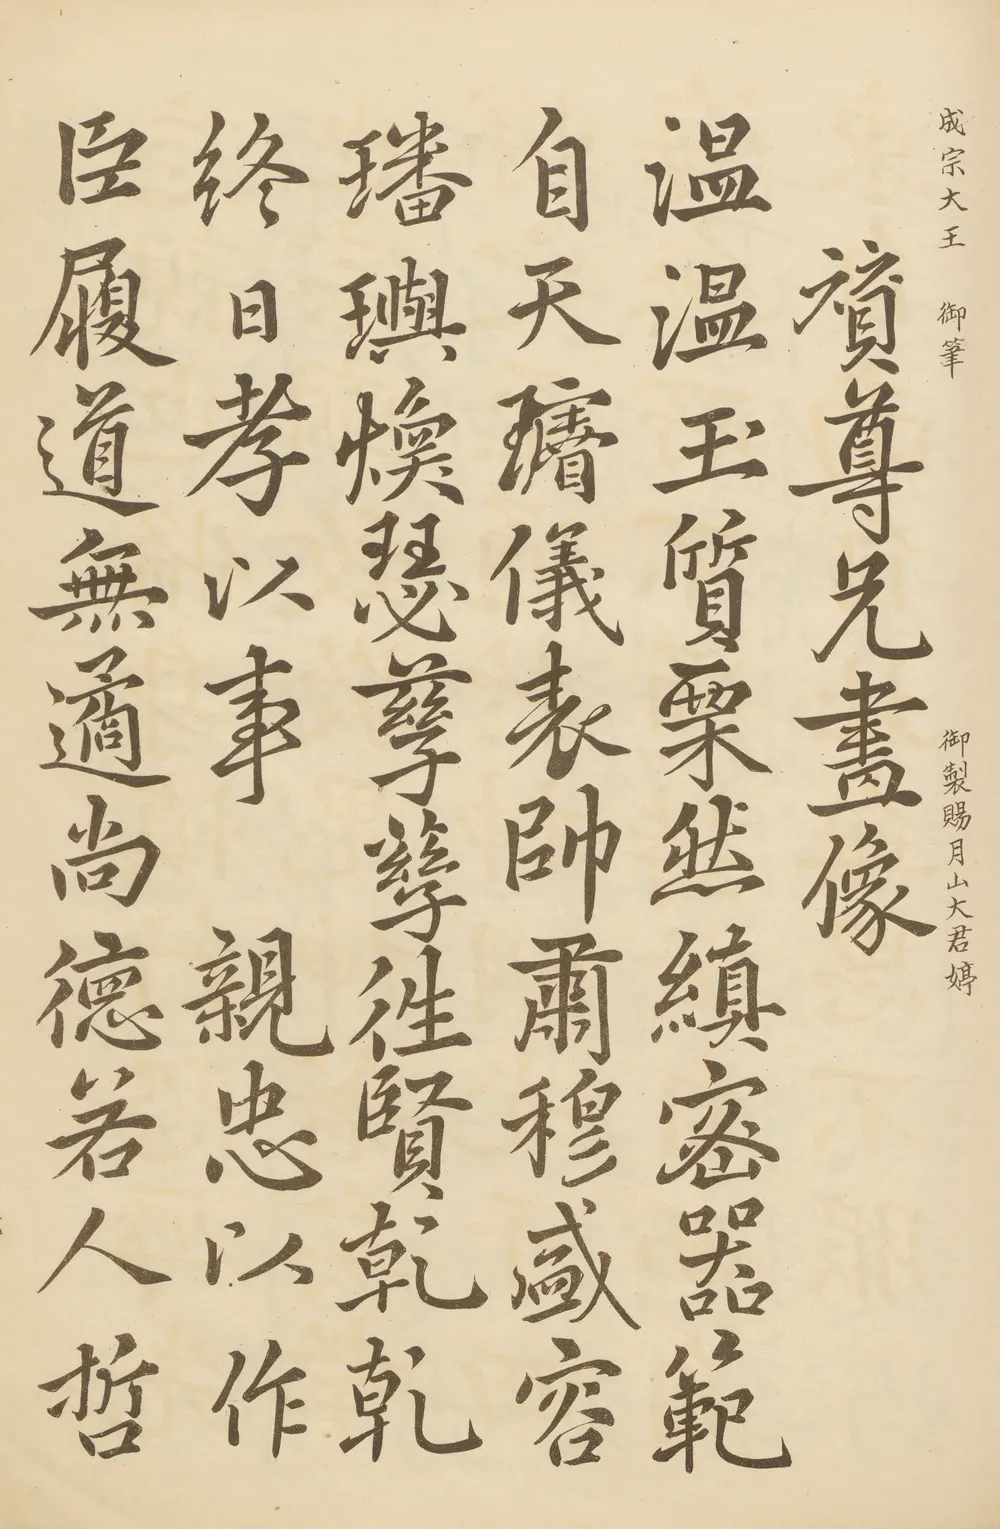 成宗大王 御筆
御製賜月山大君婷
賛尊兄畫像
溫溫玉質栗然縝密器範
自天璿儀表帥肅穆盛容
璠璵煥瑟孳孳徃賢乾乾
終日孝以事 親忠以作
臣履道無適尚德若人哲